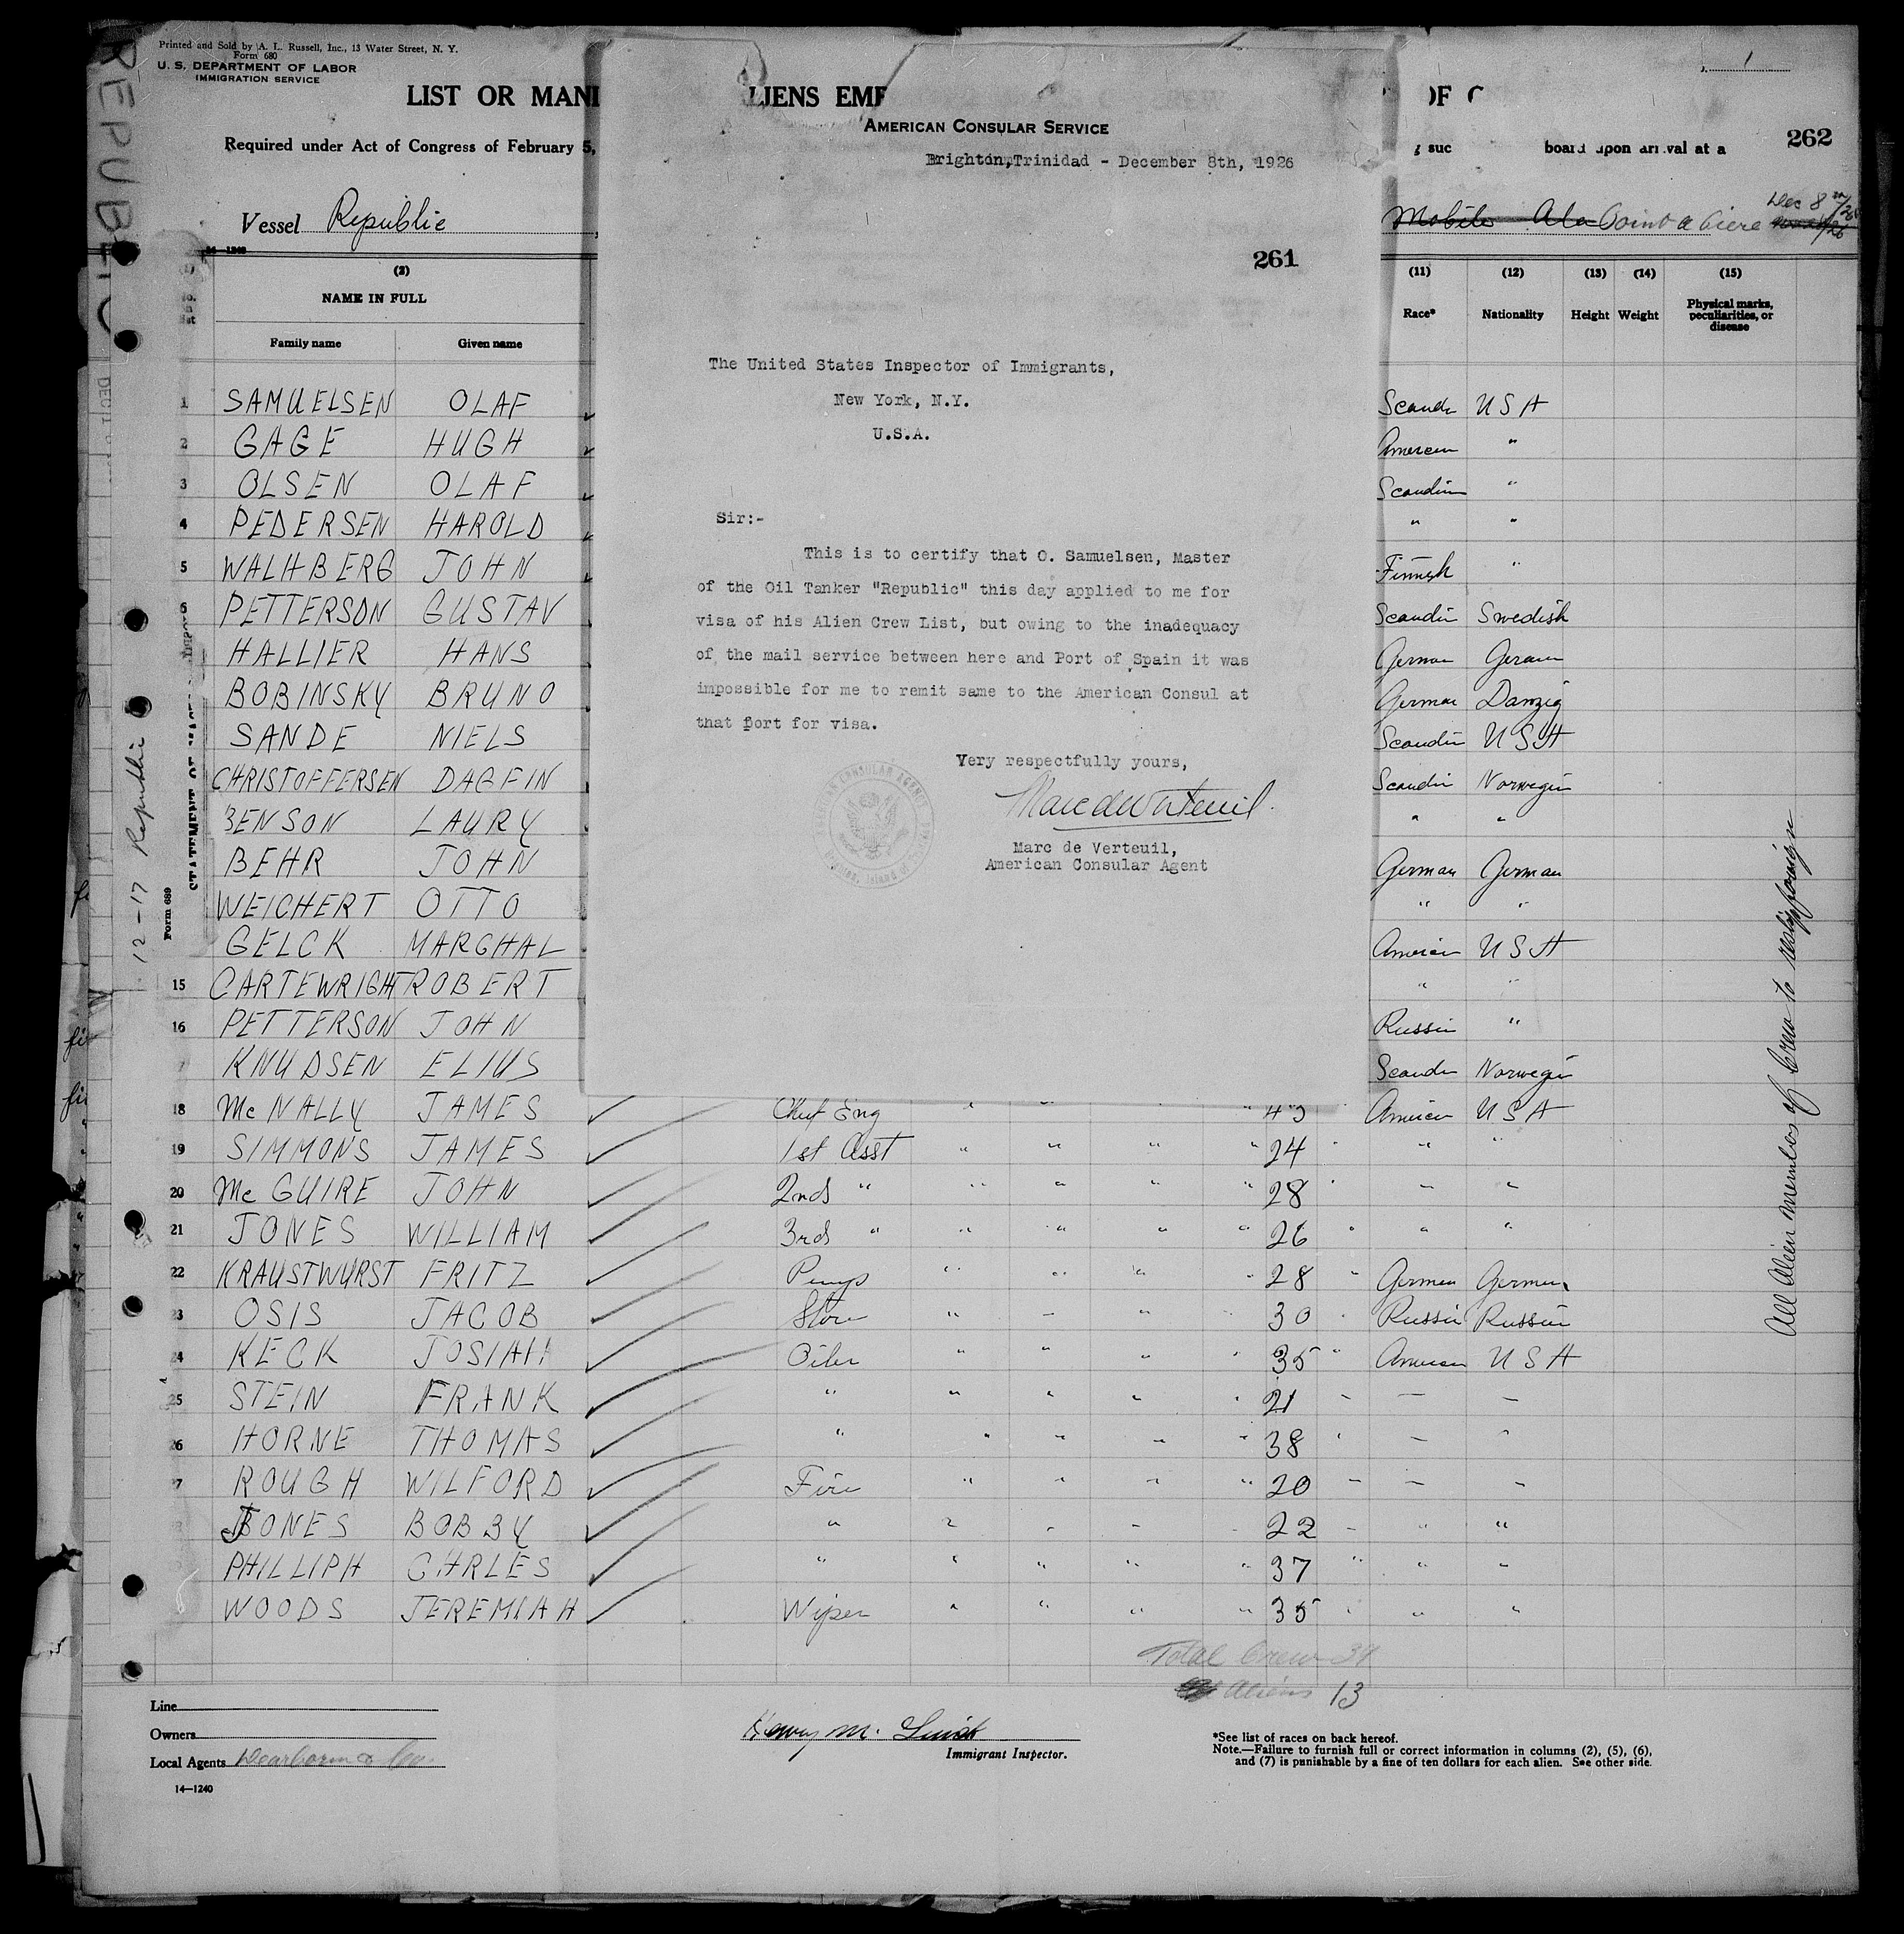 Printed and Sold by A. L. Russell, Inc., 13 Water Street, N. Y.
Form 680
U. S. DEPARTMENT OF LABOR
IMMIGRATION SERVICE
1
LIST OR MANI LIENS EMP OF C
Required under Act of Congress of February 5, board upon arrival at a
262
REPUBLIC
Vessel Republic
Mobile Ala Dec 8
(2) NAME IN FULL
Family name Given name
(11) Race*
(12) Nationality
(13) Height
(14) Weight
(15) Physical marks, peculiarities, or disease
AMERICAN CONSULAR SERVICE
Brighton, Trinidad - December 8th, 1926
261
The United States Inspector of Immigrants,
New York, N.Y.
U.S.A.
Sir:-
This is to certify that O. Samuelsen, Master
of the Oil Tanker "Republic" this day applied to me for
visa of his Alien Crew List, but owing to the inadequacy
of the mail service between here and Port of Spain it was
impossible for me to remit same to the American Consul at
that port for visa.
Very respectfully yours,
Marc de Verteuil
Marc de Verteuil,
American Consular Agent
1 SAMUELSEN OLAF Scandi USA
2 GAGE HUGH American "
3 OLSEN OLAF Scandin "
4 PEDERSEN HAROLD " "
5 WALHBERG JOHN Finnish "
6 PETTERSON GUSTAV Scandin Swedish
HALLIER HANS German German
BOBINSKY BRUNO German Danzig
SANDE NIELS Scandin USA
CHRISTOFFERSEN DAGFIN Scandin Norwegin
BENSON LAURY " "
BEHR JOHN German German
WEICHERT OTTO " "
GELCK MARGHAL American USA
15 CARTEWRIGHT ROBERT " "
16 PETTERSON JOHN Russin "
7 KNUDSEN ELIUS Scandin Norwegin
18 McNALLY JAMES Chief Eng " " " " 43 American USA
19 SIMMONS JAMES 1st Asst " " " " 24 " " "
20 McGUIRE JOHN 2nd " " " " " 28 " " "
21 JONES WILLIAM 3rd " " " " " 26 " " "
22 KRAUSTWURST FRITZ Pump " " " " 28 " German German
23 OSIS JACOB Store " " " 30 " Russin Russin
24 KECK JOSIAH Oiler " " " " 35 " American USA
25 STEIN FRANK " " " " " 21 " " "
26 HORNE THOMAS " " " " " 38 " " "
7 ROUGH WILFORD Fire " " " " 20 " " "
JONES BOBBY " " " " " 22 " " "
PHILLIPH CHRLES " " " " " 37 " " "
WOODS JEREMIAH Wiper " " " " 35 " " "
Total Crew
Aliens 13
All Alien members of Crew to reship foreign
12-17 Republic
Form 689
Line
Owners
Local Agents Dearborn & Co.
14—1240
Henry M.
Immigrant Inspector.
*See list of races on back hereof.
Note.—Failure to furnish full or correct information in columns (2), (5), (6),
and (7) is punishable by a fine of ten dollars for each alien. See other side.